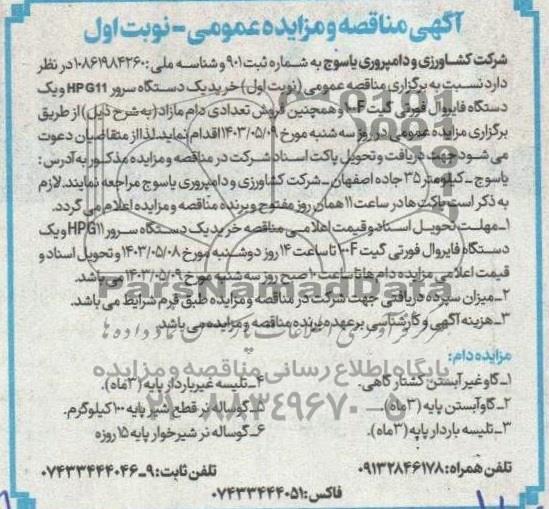 آگهی مناقصه و مزایده عمومی - نوبت اول
شرکت کشاورزی و دامپروری یاسوج به شماره ثبت ۹۰۱ و شناسه ملی: ۱۰۸۶۱۹۸۴۲۶۰ در نظر
دارد نسبت به برگزاری مناقصه عمومی (نوبت اول) خرید یک دستگاه سرور HPG11 و یک
دستگاه فایروال فورتی گیت ۱۰۰F و همچنین فروش تعدادی دام مازاد (به شرح ذیل) از طریق
برگزاری مزایده عمومی در روز سه شنبه مورخ ۱۴۰۳/۰۵/۰۹ اقدام نماید. لذا از متقاضیان دعوت
می شود جهت دریافت و تحویل پاکت اسناد شرکت در مناقصه و مزایده مذکور به آدرس:
یاسوج - کیلومتر ۳۵ جاده اصفهان - شرکت کشاورزی و دامپروری یاسوج مراجعه نمایند. لازم
به ذکر است پاکت ها در ساعت ۱۱ همان روز مفتوح و برنده مناقصه و مزایده اعلام می گردد.
۱- مهلت تحویل اسناد و قیمت اعلامی مناقصه خرید یک دستگاه سرور HPG11 و یک
دستگاه فایروال فورتی گیت ۱۰۰F تا ساعت ۱۴ روز دوشنبه مورخ ۱۴۰۳/۰۵/۰۸ و تحویل اسناد و
قیمت اعلامی مزایده دام ها تا ساعت ۱۰ صبح روز سه شنبه مورخ ۱۴۰۳/۰۵/۰۹ می باشد.
ParsNamadData
۲- میزان سپرده دریافتی جهت شرکت در مناقصه و مزایده طبق فرم شرایط می باشد.
۳- هزینه آگهی و کارشناسی بر عهده برنده مناقصه و مزایده می باشد.
مزایده دام:
پایگاه اطلاع رسانی مناقصه و مزایده
۱- گاو غیر آبستن کشتار گاهی.
۲- گاو آبستن پایه (۳ ماه).
۳- تلیسه باردار پایه (۳ ماه).
۴- تلیسه غیر باردار پایه (۳ ماه).
۵- گوساله نر قطع شیر پایه ۱۰۰ کیلوگرم.
۶- گوساله نر شیرخوار پایه ۱۵ روزه
۰۲۱-۸۸۳۴۹۶۷۰-۵
تلفن همراه: ۰۹۱۳۲۸۴۶۱۷۸
تلفن ثابت: ۹-۰۷۴۳۳۴۴۴۰۴۶
فاکس: ۰۷۴۳۳۴۴۴۰۵۱